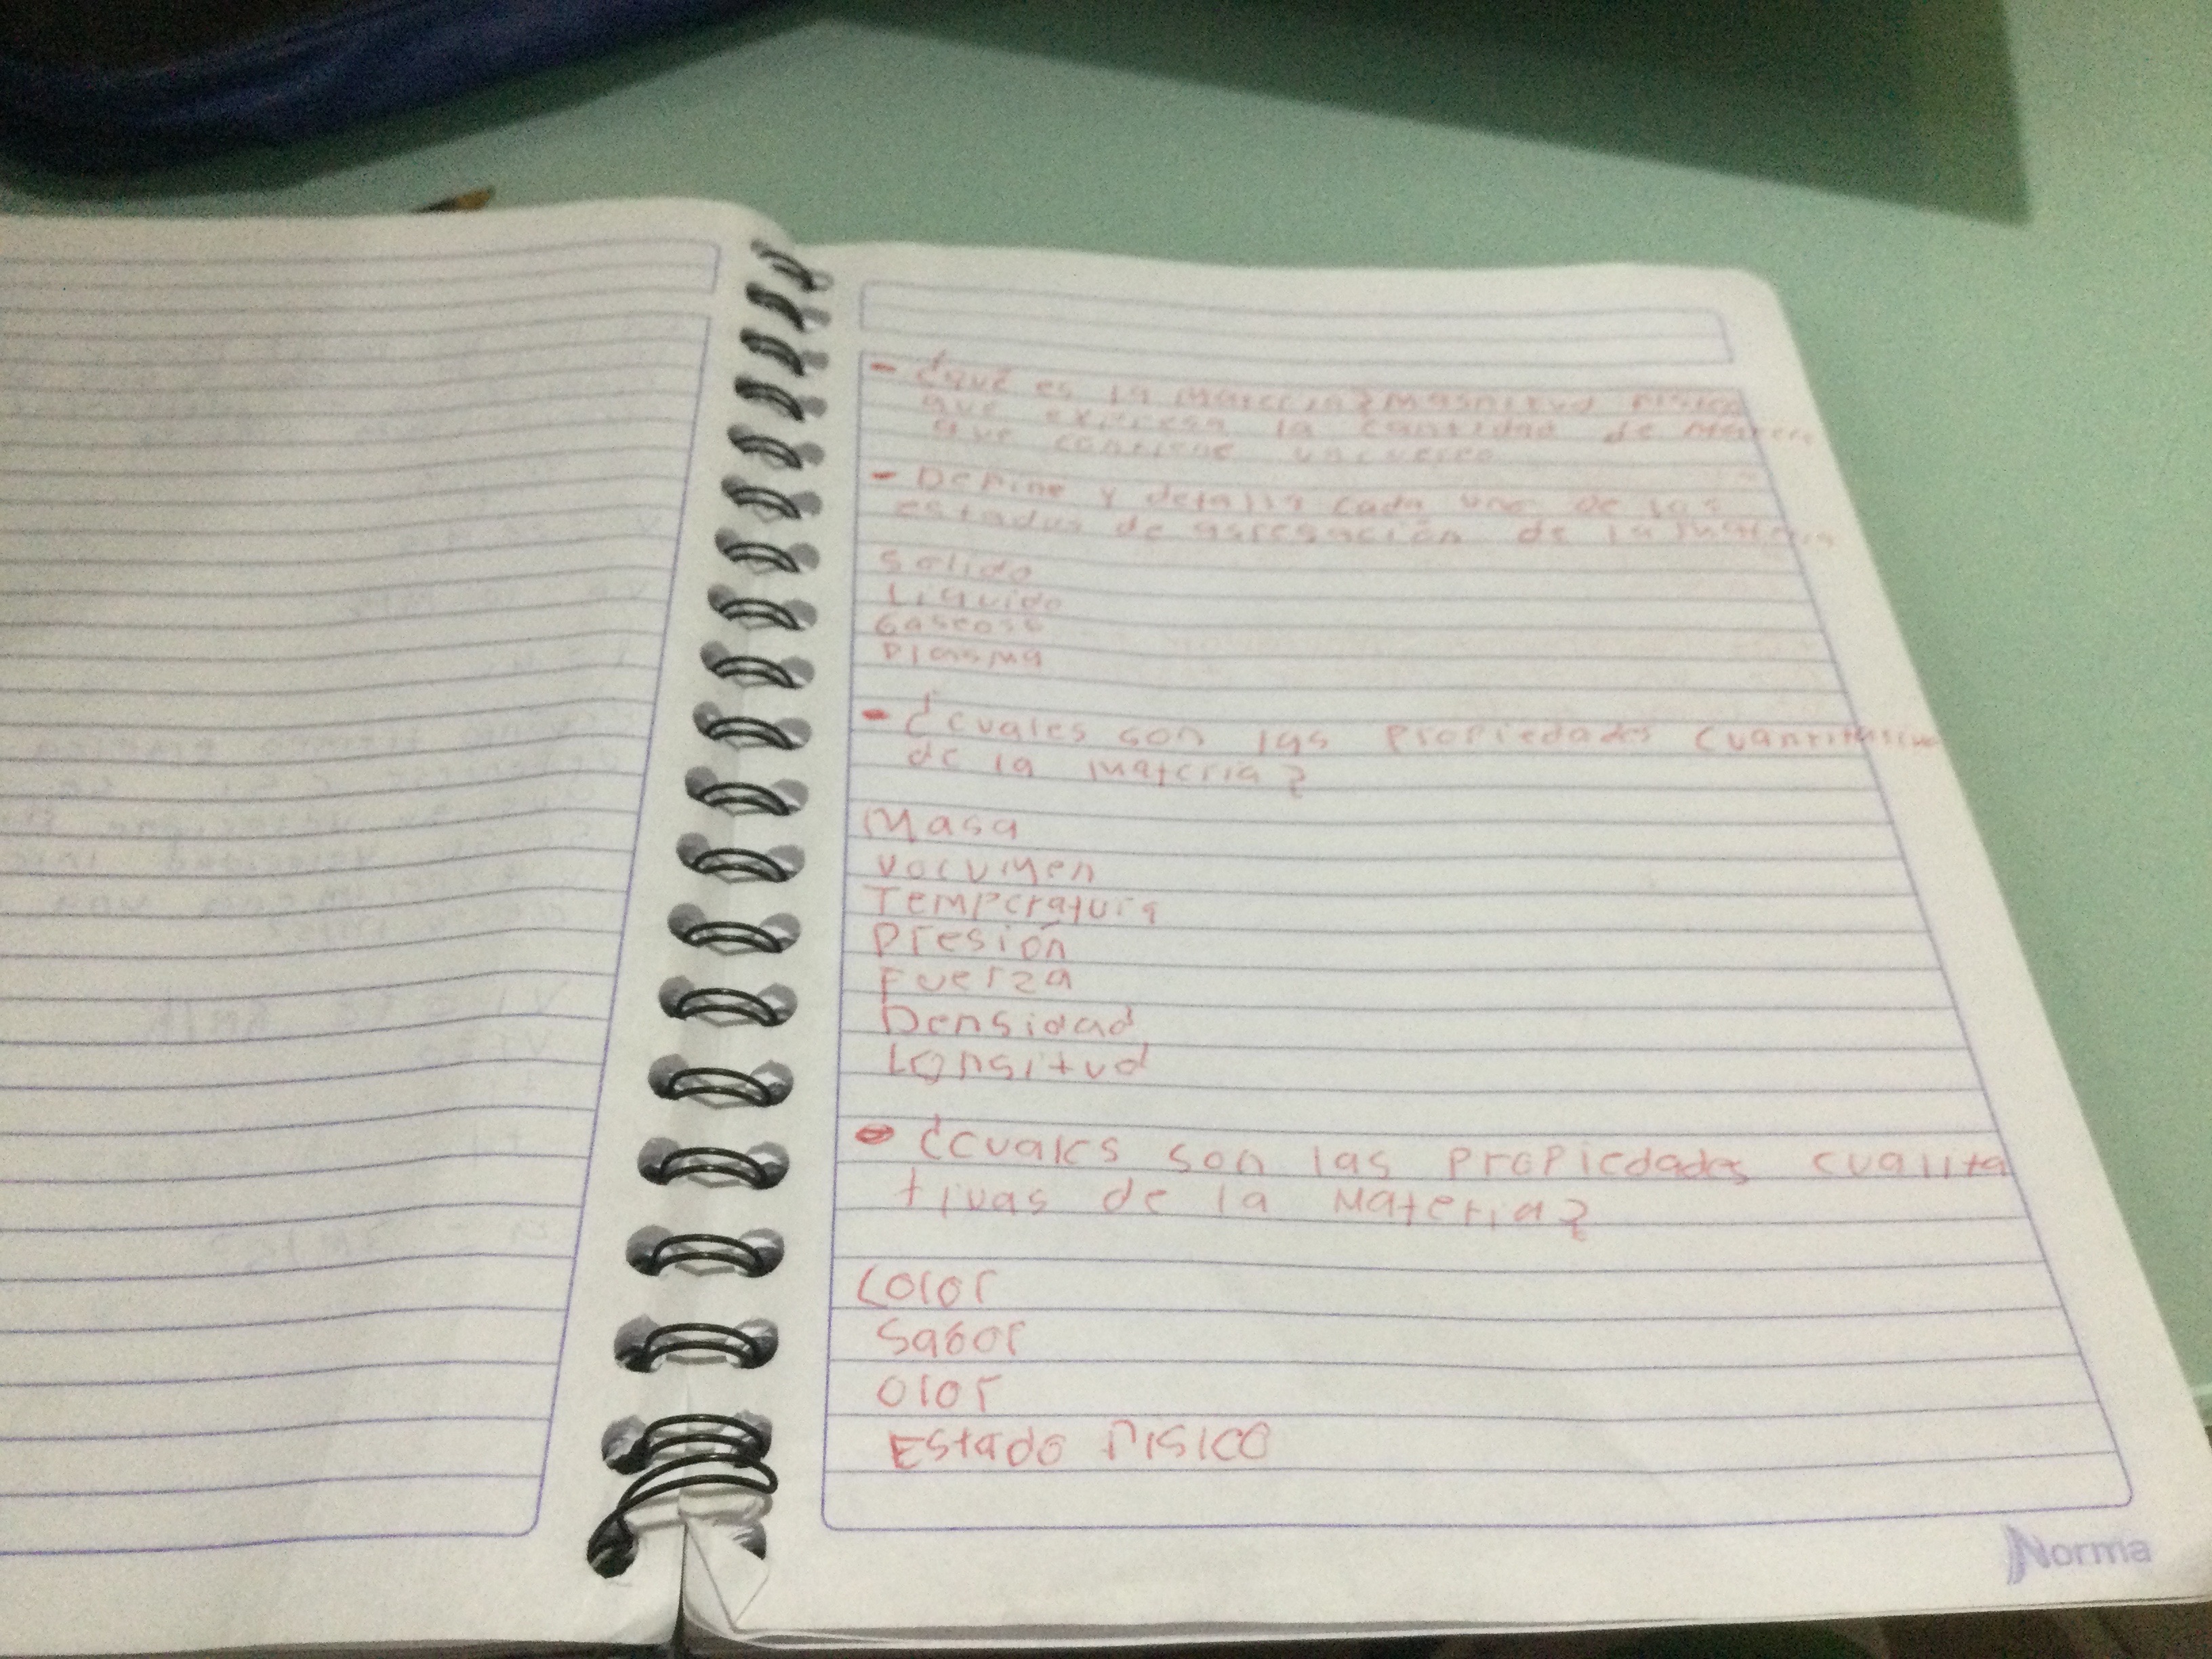 - ¿que es la materia? Magnitud fisica
que expresa la cantidad de materia
que contiene un cuerpo
- Define y detalla cada uno de los
estados de agregación de la materia
Solido
Liquido
Gaseoso
Plasma
- ¿cuales son las propiedades cuantitativas
de la materia?
Masa
Volumen
Temperatura
Presión
Fuerza
Densidad
Longitud
- ¿cuales son las propiedades cualita
tivas de la Materia?
Color
Sabor
Olor
Estado Fisico
Norma